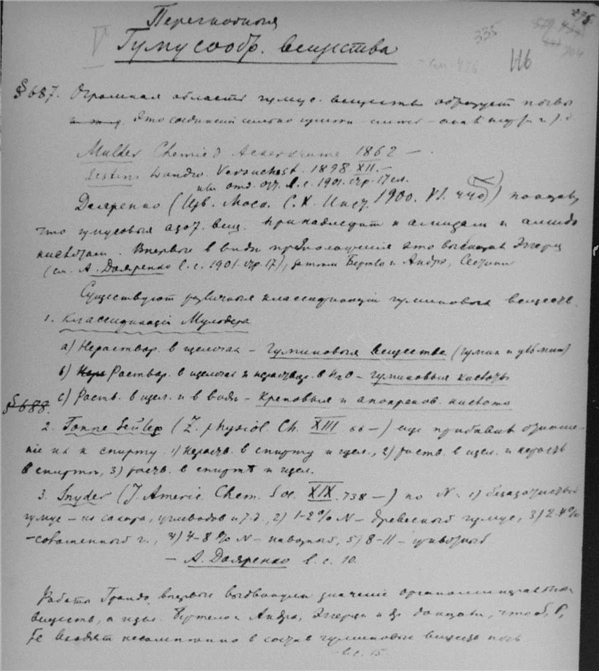 Перегнойныя
Гумусообр. вещества
335
116
§ 687. Огромная область гумус. веществ образует почвы
Это соединения сильно
Mulder Chemie d. Ackerkrume 1862 —
Sestini Landw. Versuchsst. 1898 XII. —
или отд. л. с. 1901. стр. 17 сл.
Дояренко (Изв. Моск. С. Х. Инст. 1900. VI. 440) показал,
что гумусовыя азот. вещ. принадлежат к амидам и амидо
кислотам. Впервые в виде предположения это высказал Эггерц
(см. А. Дояренко l. c. 1901 стр. 17), затем Бертло и Андре, Сестини
Существуют различныя классификации гуминовых веществ.
1. Классификация Мульдера
a) Нераствор. в щелочах — гуминовыя вещества (гумин и ульмин)
b) Раствор. в щелочах и нераствор. в H2O — гуминовыя кислоты
§ 688.
c) Раств. в щел. и в воде — креновыя и апокренов. кислота
2. Гоппе Зейлер (Z. physiol Ch. XIII 66 —) еще прибавил отноше-
ние их к спирту. 1) нераств. в спирту и щел., 2) раств. в щел. и нераств.
в спирту, 3) раств. в спирте и щел.
3. Snyder (J. Americ Chem. Soc XIX. 738 —) по N. 1) безазотистый
гумус — из сахара, углеводов и т. д., 2) 1-2% N — древесный гумус, 3) 2-4%
— соломенный г., 4) 4-8% N — навозный, 5) 8-11 —
— А. Дояренко l. c. 10.
Работы Грандо, впервые выдвинули значение органоминеральных
веществ, а исслед. Бертело и Андре, Эггерца и др доказали, что S, P,
Fe входят несомненно в состав гуминовых веществ почв
l. c. 15